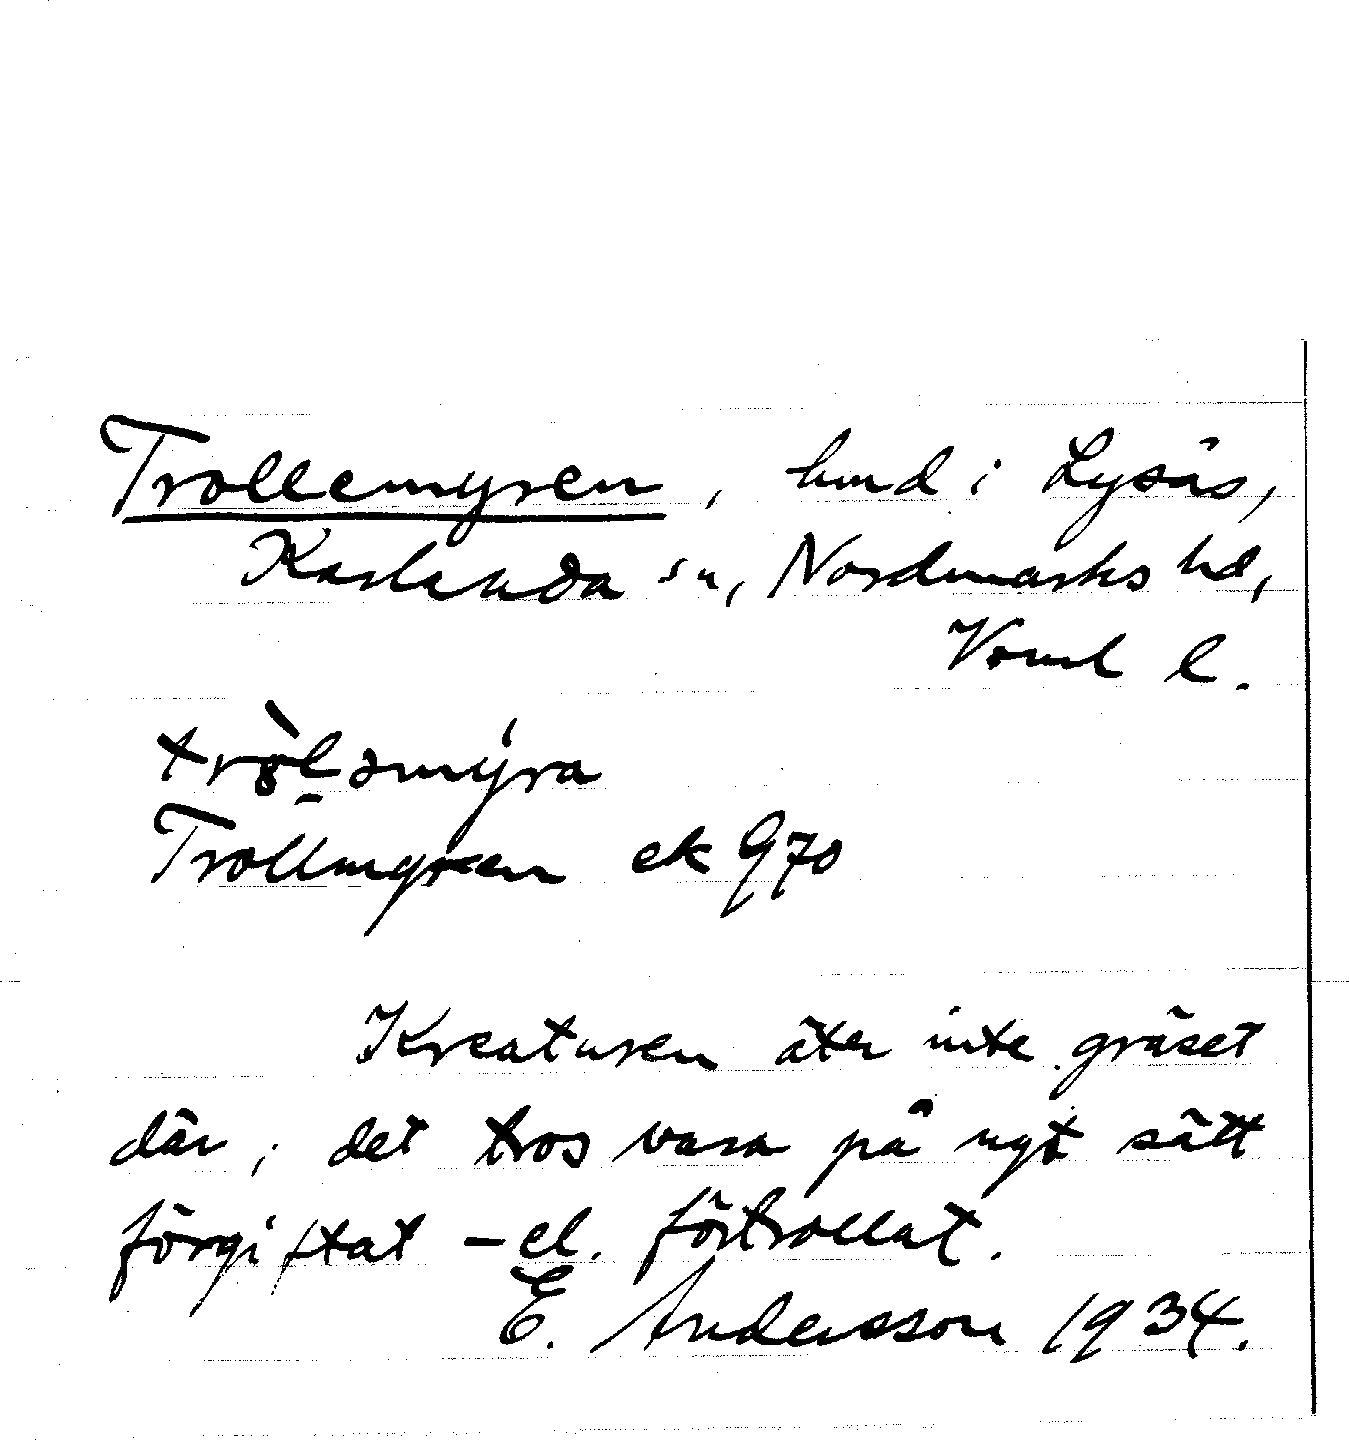 Trollemyren, lund i Lysås,
Karlanda sn, Nordmarks hd,
Värml l.
Trollmyren ek 970
Kreaturen äter inte gräset
där; det tros vara på nyt sätt
förgiftat - el. förtrollat.
E. Andersson 1934.